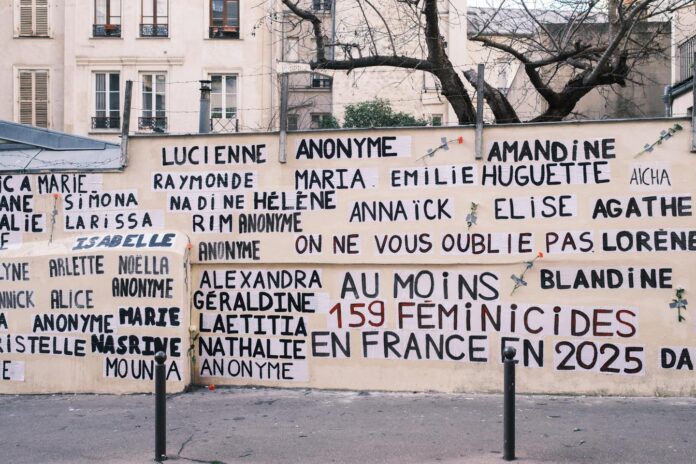 LUCIENNE ANONYME AMANDINE
MARIE RAYMONDE MARIA EMILIE HUGUETTE AÏCHA
SIMONA NADINE HÉLÈNE ANNAÏCK ELISE AGATHE
LARISSA RIM ANONYME
ISABELLE ANONYME ON NE VOUS OUBLIE PAS LORÈN
ARLETTE NOËLLA
ALICE ANONYME
ANONYME MARIE
NASRINE
MOUNIA
ALEXANDRA
GÉRALDINE
LAETITIA
NATHALIE
ANONYME
AU MOINS BLANDINE
159 FÉMINICIDES
EN FRANCE EN 2025 DA